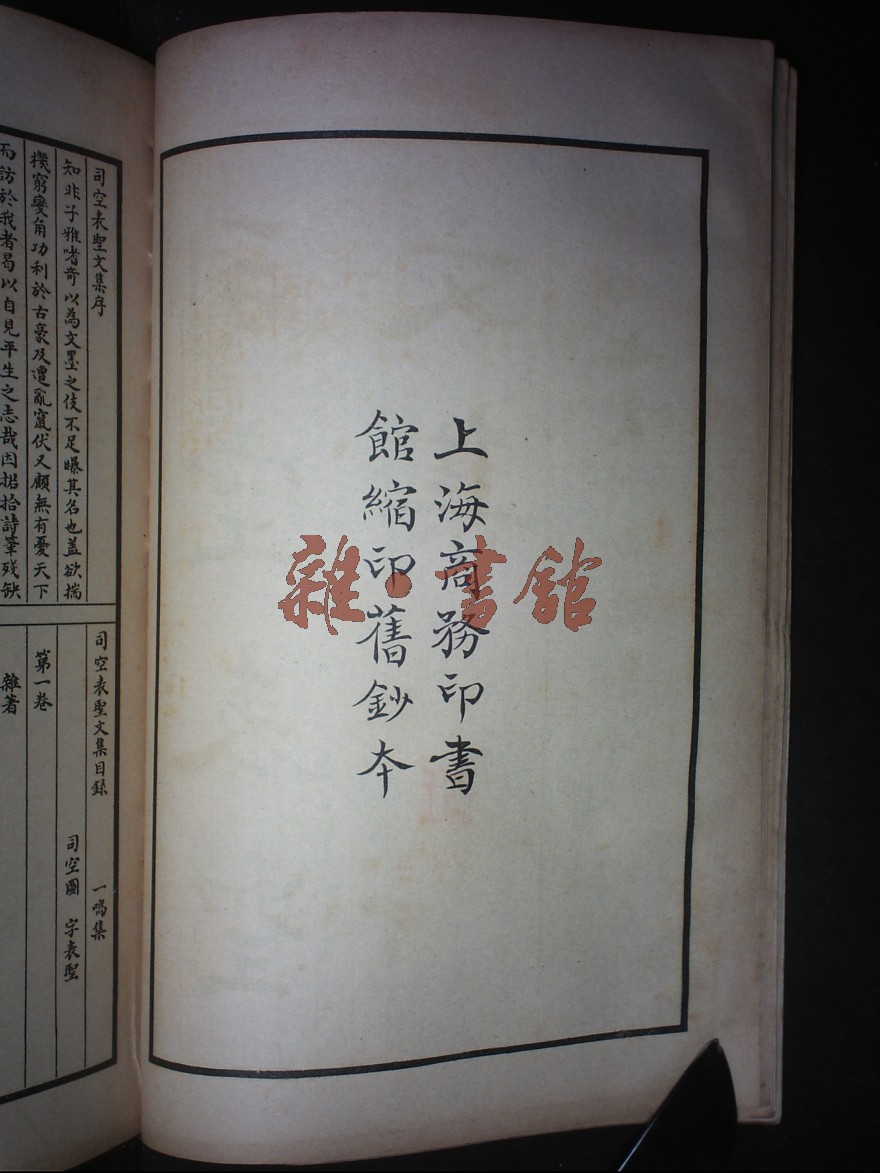 上海商務印書
館縮印舊鈔本
司空表聖文集序
知非子雅嗜奇以為文墨之伎不足曝其名也盖欲揣
機窮變角功利於古豪及遭亂竄伏又顧無有憂天下
而訪於我者曷以自見平生之志哉因捃拾詩筆殘缺
司空表聖文集目録 一鳴集
司空圖 字表聖
第一卷
雜著
雜·書館